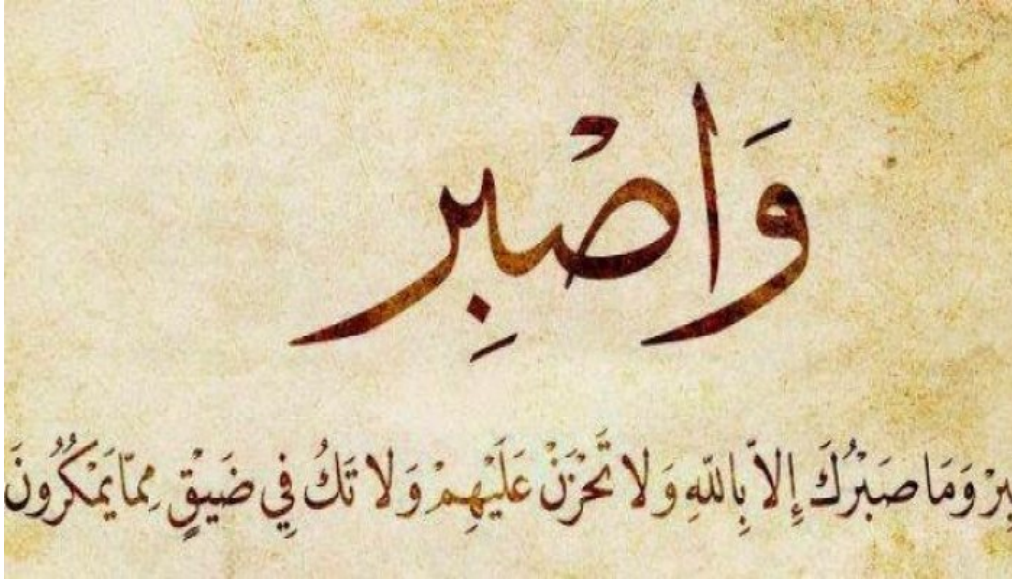 وَاصْبِر
وَمَا صَبْرُكَ إِلاَّ بِاللّهِ وَلاَ تَحْزَنْ عَلَيْهِمْ وَلاَ تَكُ فِي ضَيْقٍ مِمَّا يَمْكُرُونَ